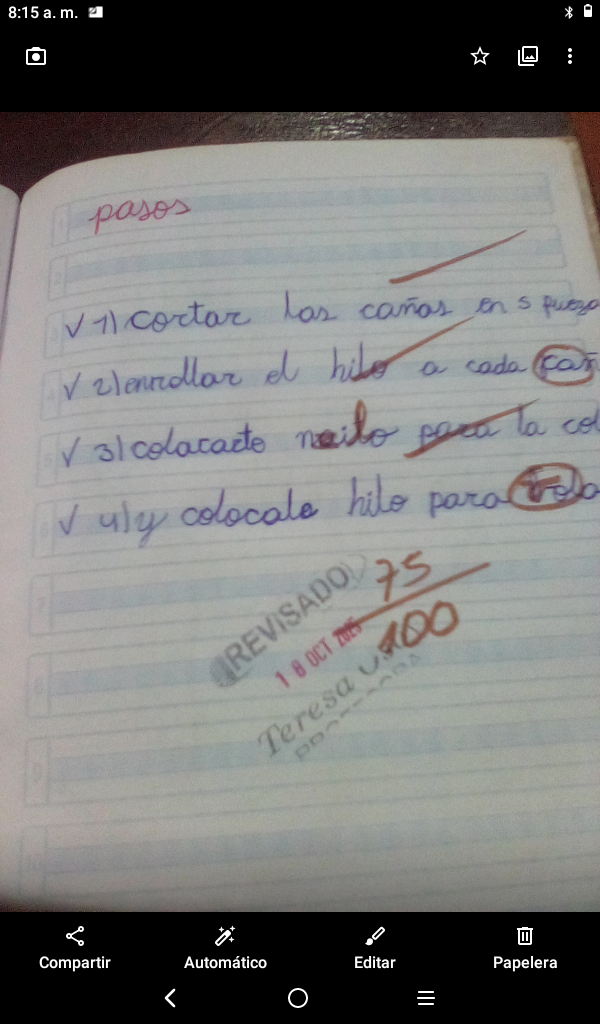 8:15 a. m.
pasos
√ 1) cortar las cañas en 5
√ 2) enrollar el hilo a cada cañ
√ 3) colacarte nailo para la col
√ 4) y colocale hilo para vola
75
100
REVISADO
18 OCT 2025
Teresa
Compartir Automático Editar Papelera